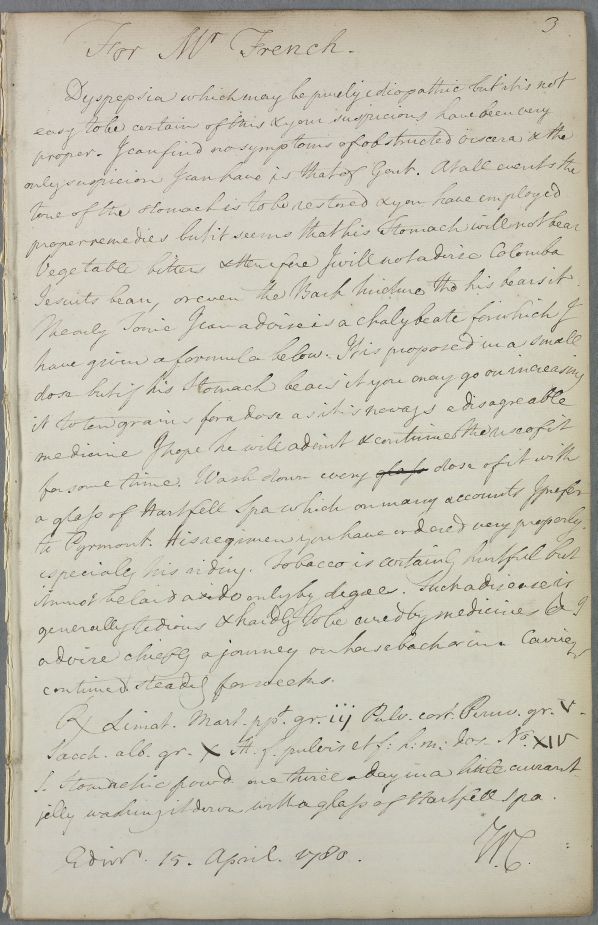 3
For Mr French.
Dyspepsia which may be purely idiopathic but it is not
easy to be certain of this & your suspicions have been very
proper. I can find no symptoms of obstructed viscera & the
only suspicion I can have is that of Gout. At all events the
tone of the stomach is to be restored & you have employed
proper remedies but it seems that his Stomach will not bear
Vegetable bitters & therefore I will not advise Colomba
Jesuits bean, or even the Bark tincture tho his bears it.
The only Tonic I can advise is a chalybeate for which I
have given a formula below. It is proposed in a small
dose but if his Stomach bears it you may go on increasing
it to ten grains for a dose as it is noways a disagreable
medicine I hope he will admit & continue the use of it
for some time. Wash down every glass dose of it with
a glass of Hartfell Spa which on many accounts I prefer
to Pyrmont. His regimen you have ordered very properly,
especialy his riding. Tobacco is certainly hurtful but
it must be laid aside only by degees. Such a disease is
generally tedious & hardly to be cured by medicines & I
advise chiefly a journey on horseback or in a
continued steadily for weeks.
℞ Limat. Mart. ppt. gr. iij Pulv. cort. Peruv. gr. V.
Sacch. alb. gr. X M. f. pulvis et s: h: m: dos. No. XIV
S. Stomachic powd. one three a day in a little currant
jelly washing it down with a glass of Hartfell Spa.
Edinr. 15. April. 1780.
W.C.